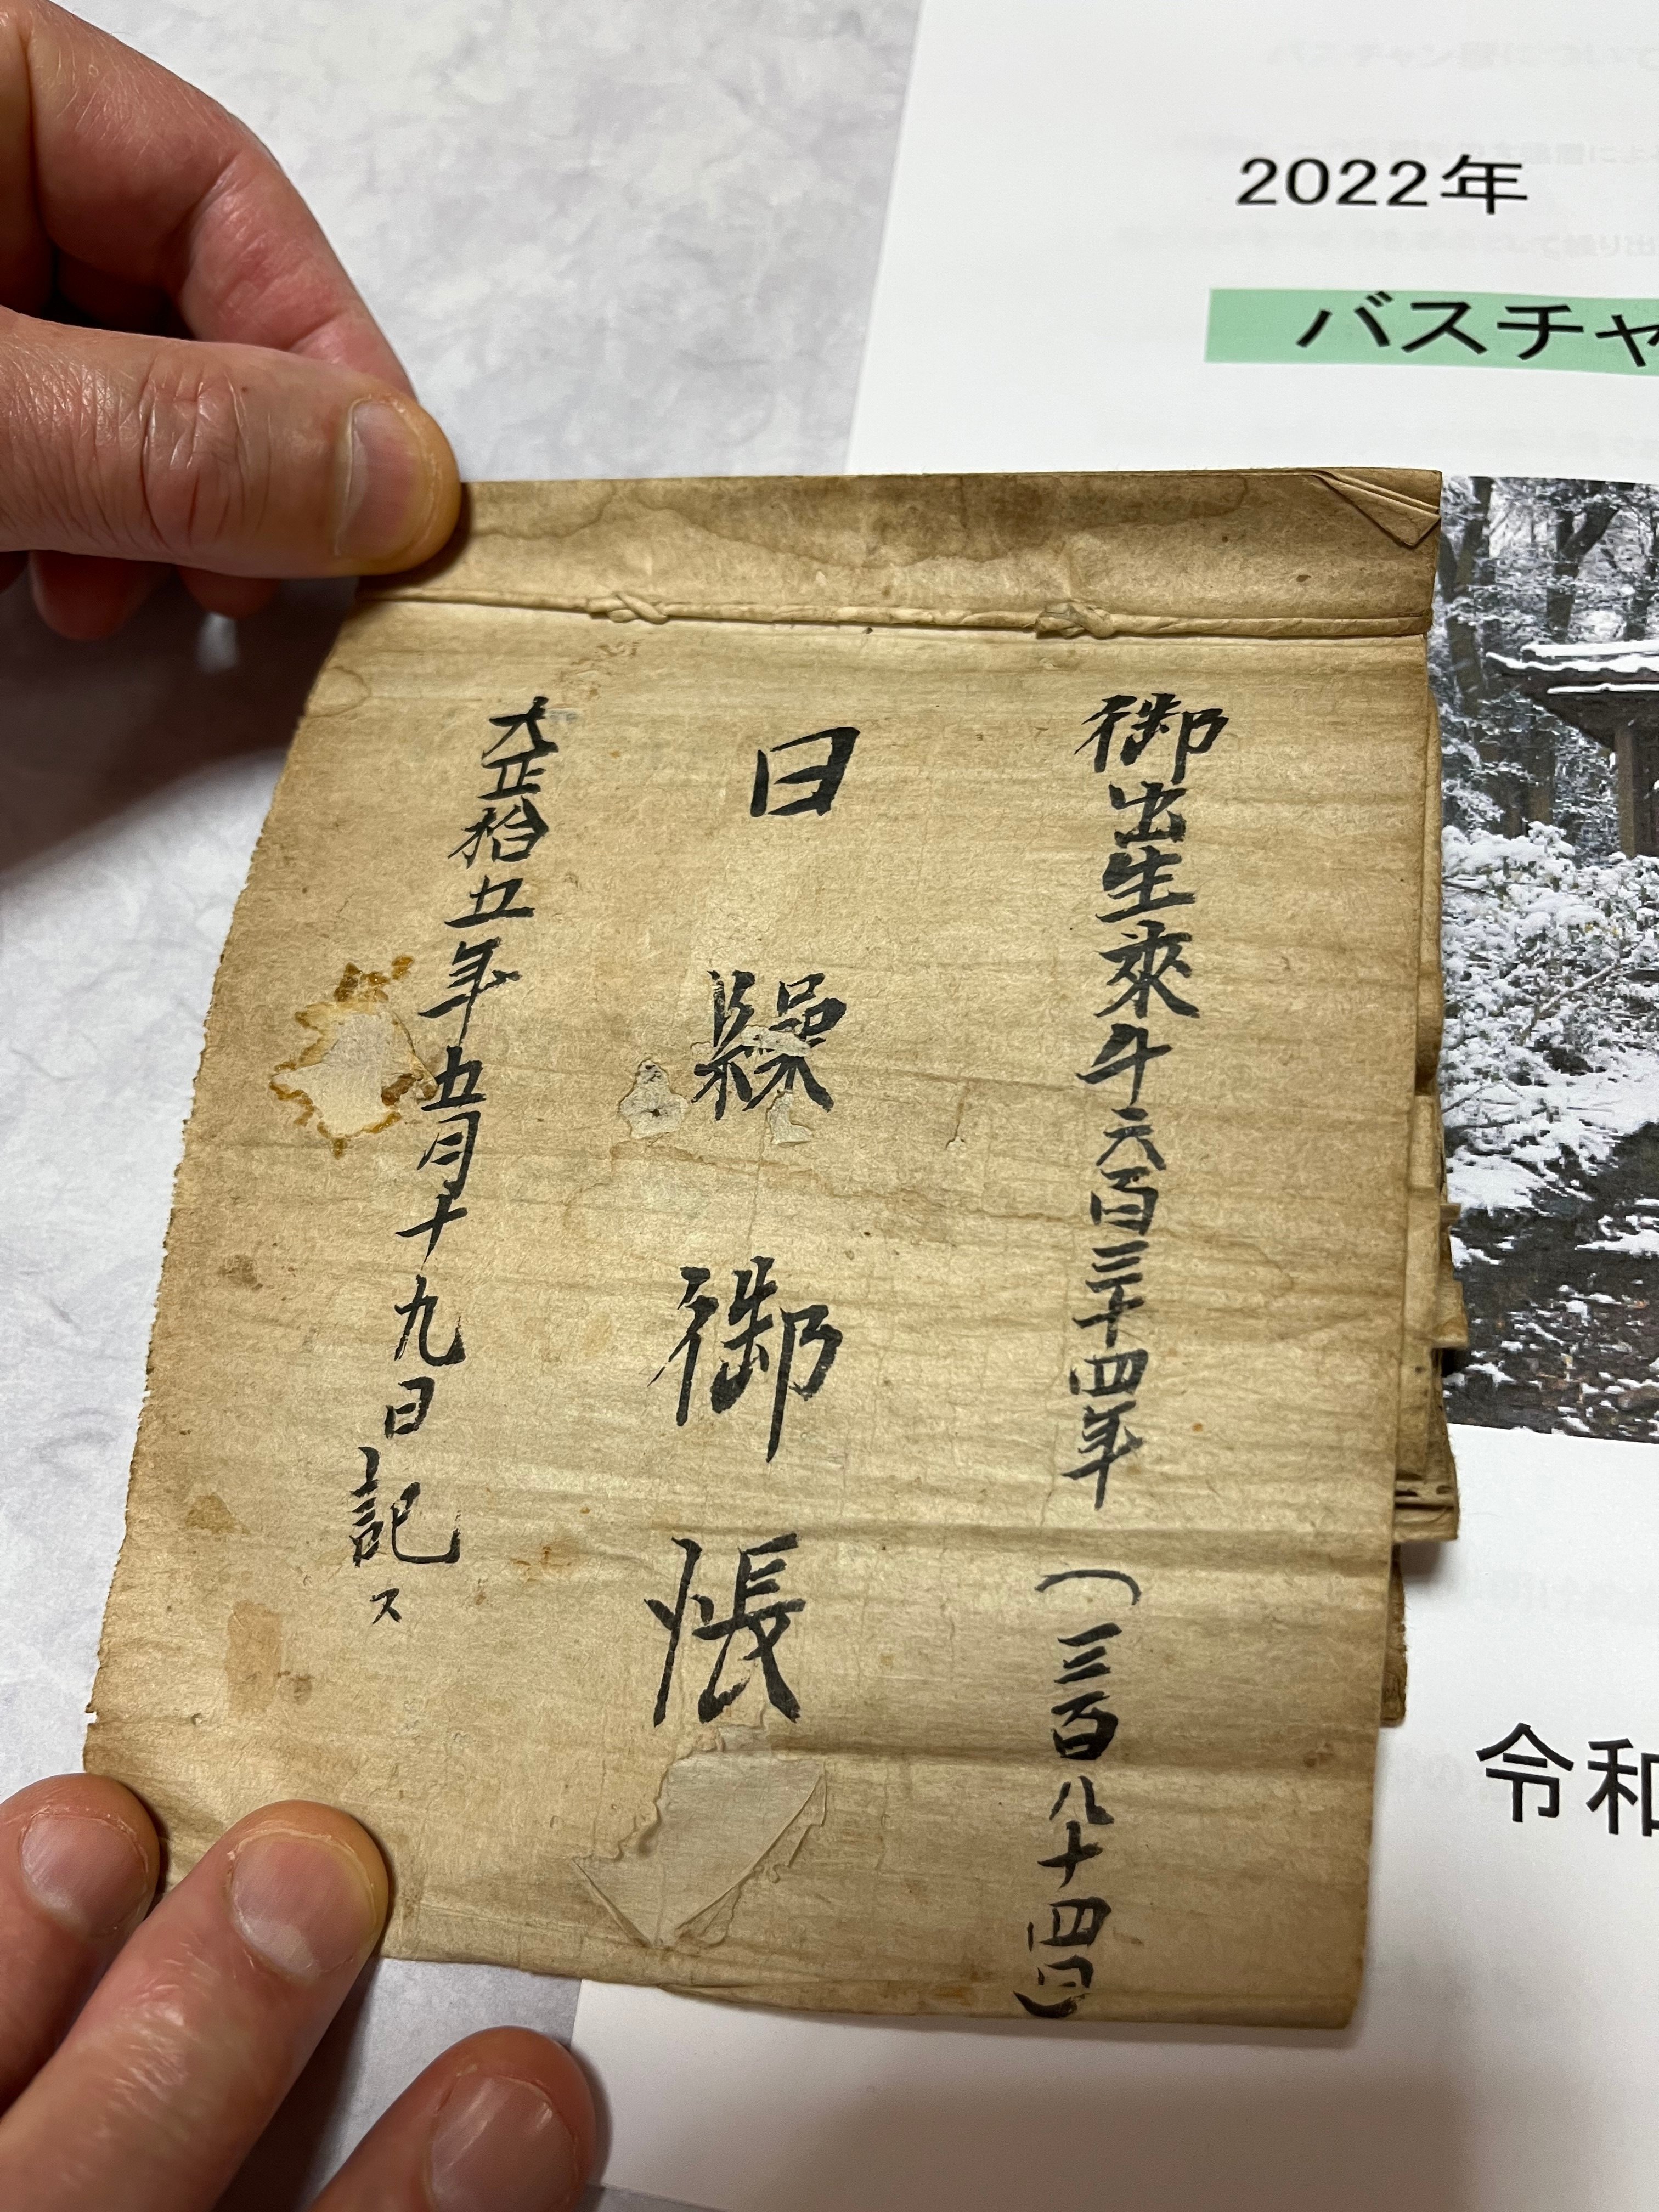 2022年
バスチャ
御出生來千六百三十四年(三百八十四日)
日繰御帳
大正拾五年五月十九日記ス
令和